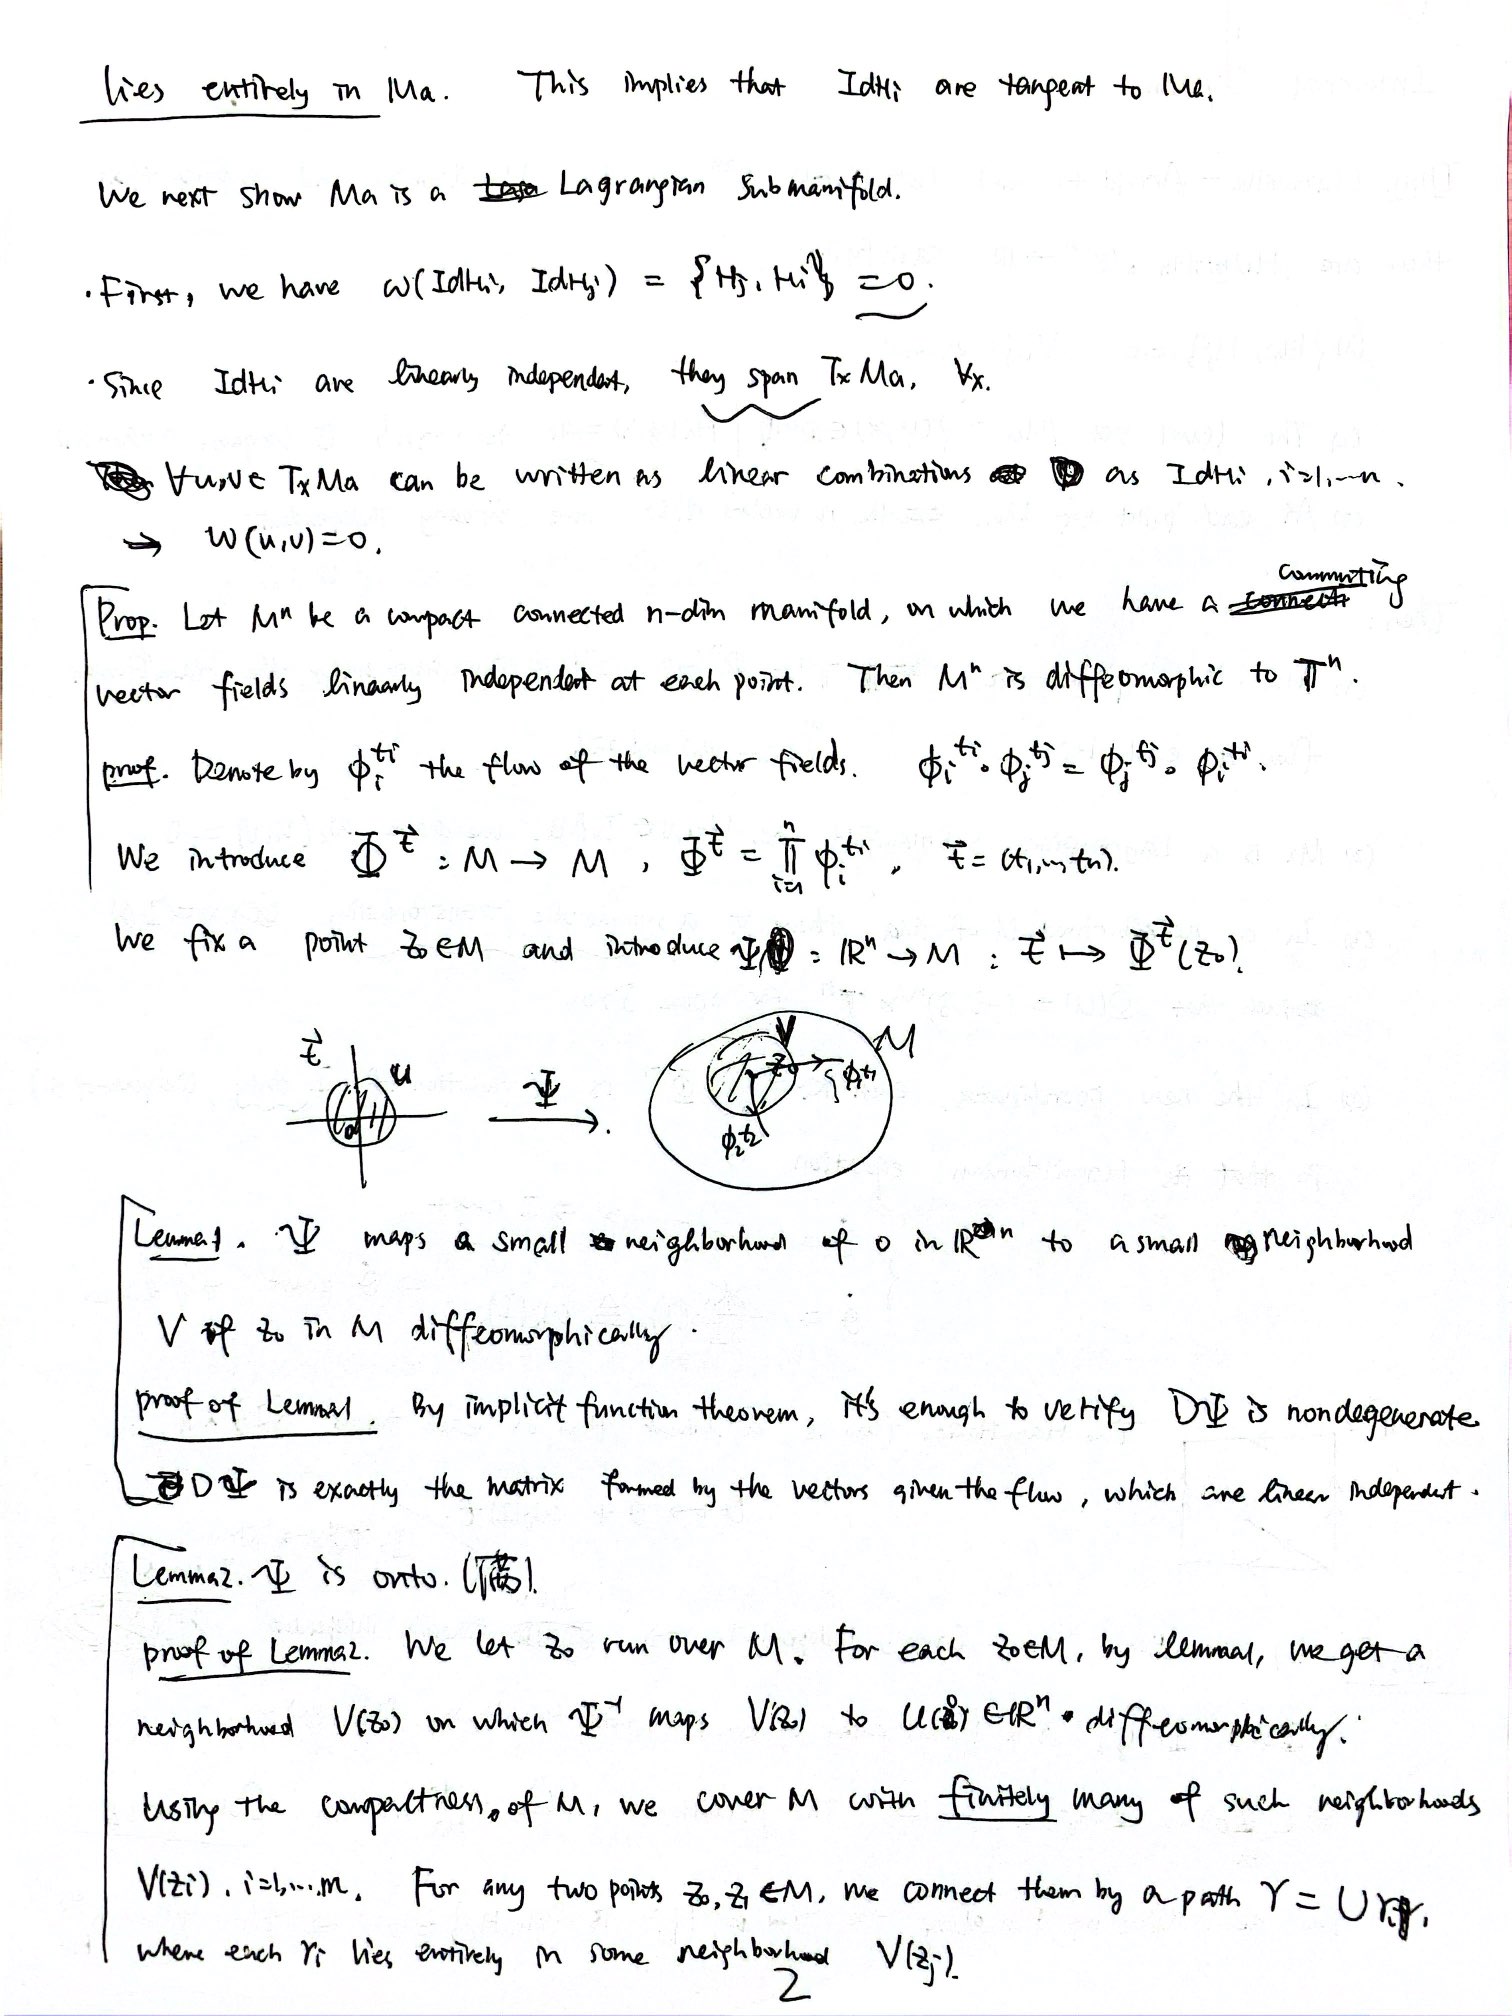 lies entirely in Ma. This implies that IdHi are tangent to Ma.
We next show Ma is a Lagrangian submanifold.
· First, we have ω(IdHi, IdHj) = {Hj, Hi} = 0.
· Since IdHi are linearly independent, they span TxMa, ∀x.
∀u,v ∈ TxMa can be written as linear combinations as IdHi, i=1,...n.
→ ω(u,v)=0.
commuting
Prop. Let Mⁿ be a compact connected n-dim manifold, on which we have a
vector fields linearly independent at each point. Then Mⁿ is diffeomorphic to 𝕋ⁿ.
proof. Denote by ϕᵢ^{ti} the flow of the vector fields. ϕᵢ^{ti} ∘ ϕⱼ^{tj} = ϕⱼ^{tj} ∘ ϕᵢ^{ti}.
We introduce Φ^{t⃗} : M → M, Φ^{t⃗} = ∏_{i=1}^{n} ϕᵢ^{ti}, t⃗ = (t1,...,tn).
We fix a point z0 ∈ M and introduce Ψ : ℝⁿ → M : t⃗ ↦ Φ^{t⃗}(z0).
t⃗ U 0 Ψ V z0 M ϕ1^{t1} ϕ2^{t2}
Lemma1. Ψ maps a small neighborhood of 0 in ℝⁿ to a small neighborhood
V of z0 in M diffeomorphically.
proof of Lemma1. By implicit function theorem, it's enough to verify DΨ is nondegenerate
DΨ is exactly the matrix formed by the vectors given the flow, which are linear independent.
Lemma2. Ψ is onto.
proof of Lemma2. We let z0 run over M. For each z0∈M, by lemma1, we get a
neighborhood V(z0) on which Ψ⁻¹ maps V(z0) to U(0) ∈ ℝⁿ diffeomorphically.
Using the compactness of M, we cover M with finitely many of such neighborhoods
V(zi), i=1,...m. For any two points z0, z1 ∈ M, we connect them by a path γ = ∪γi,
where each γi lies entirely in some neighborhood V(zj).
2